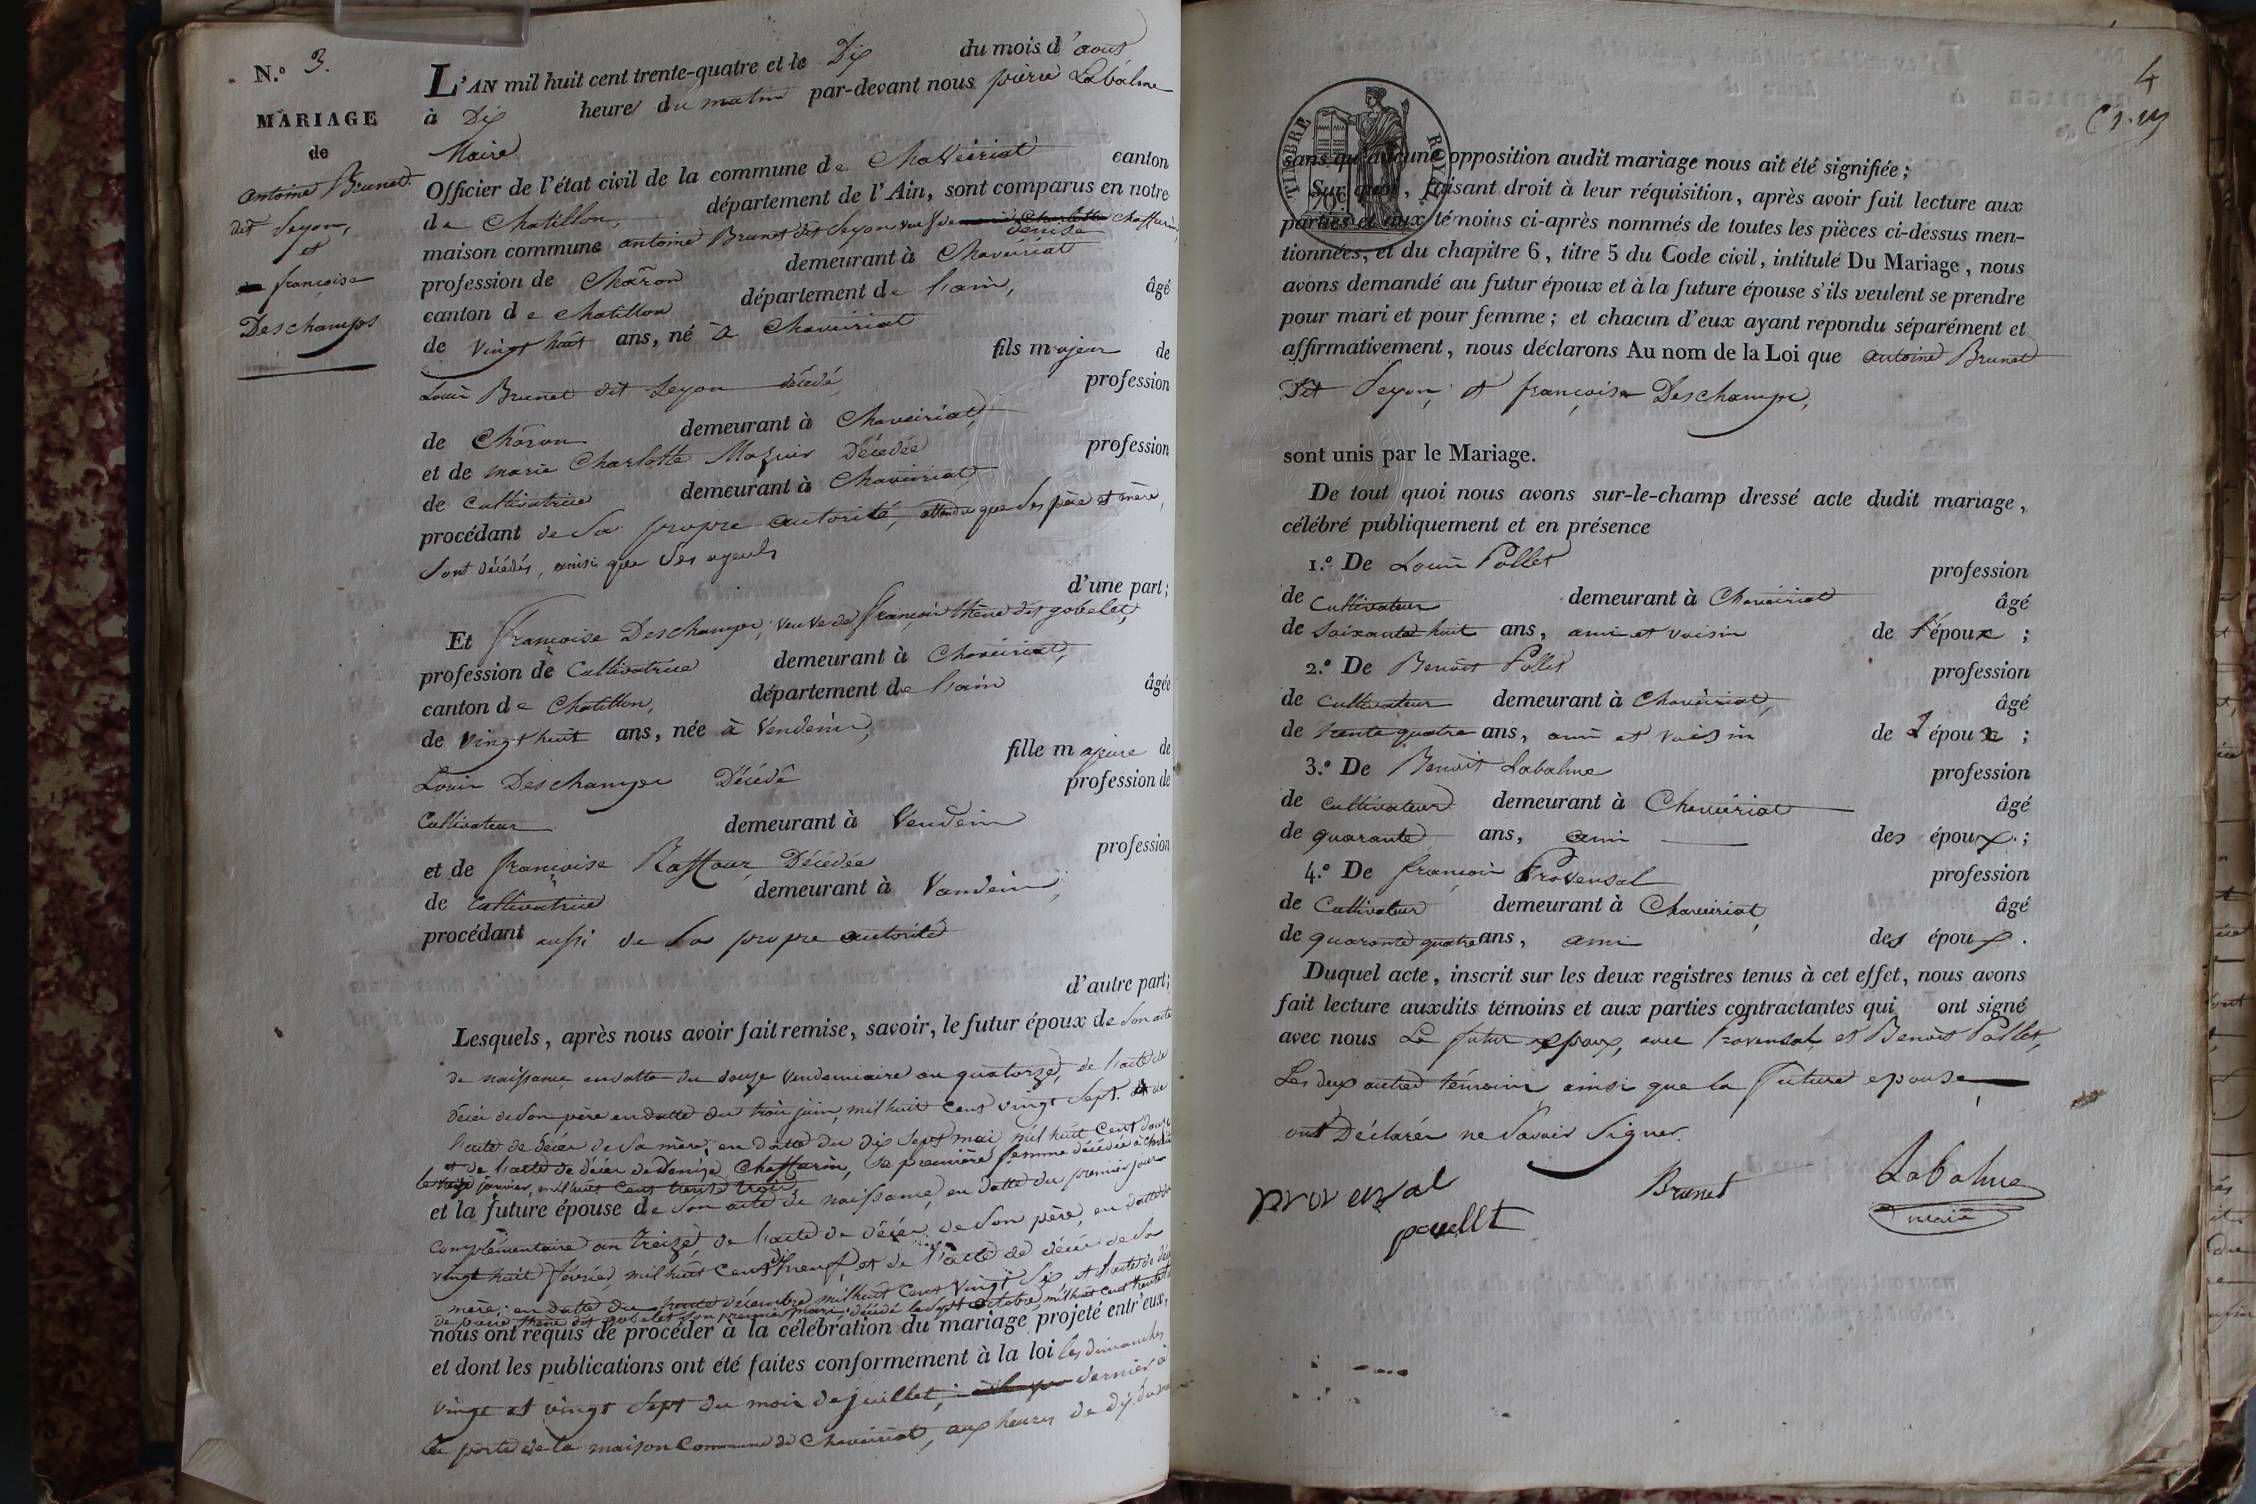 N.º 3.
MARIAGE
de
antoine Brunet
dit Seyon,
et
françoise
Deschamps
L'AN mil huit cent trente-quatre et le Dix du mois d'aout
à Dix heures du matin par-devant nous pierre Labalme
Maire
Officier de l'état civil de la commune de Chaveiriat canton
de Chatillon, département de l'Ain, sont comparus en notre
maison commune antoine Brunet dit Seyon veuf de denise Chaffurin,
profession de Charon demeurant à Chaveiriat
canton de Chatillon département de l'ain, âgé
de vingt huit ans, né à Chaveiriat
fils majeur de
Louis Brunet dit Seyon décédé, profession
de Charon demeurant à Chaveiriat,
et de marie Charlotte Mazuir Décédée profession
de cultivatrice demeurant à Chaveiriat,
procédant de sa propre autorité, attendu que ses père et mère,
sont décédés, ainsi que ses ayeuls
d'une part;
Et françoise Deschamps, veuve de françois thène dit gobelet,
profession de Cultivatrice demeurant à Chaveiriat,
canton de Chatillon, département de l'ain âgée
de vingt huit ans, née à Vendeins,
fille majeure de
Louis Deschamps Décédé profession de
Cultivateur demeurant à Vendeins
et de françoise Raffour Décédée profession
de Cultivatrice demeurant à Vandeins,
procédant aussi de sa propre autorité
d'autre part;
Lesquels, après nous avoir fait remise, savoir, le futur époux de son acte
de naissance en datte du douze vendemiaire an quatorze, de l'acte de
décès de son père en datte du trois juin, mil huit cent vingt sept. et de
l'acte de décès de sa mère, en datte du dix sept mai mil huit cent douze
et de l'acte de décès de denise Chaffurin, sa première femme décédée à
le janvier, mil huit cent trente trois
et la future épouse de son acte de naissance, en datte du premier jour
complémentaire an treize, de l'acte de décès de son père, en datte du
vingt huit février, mil huit cent dix neuf, et de l'acte de décès de sa
mère, en datte du trente décembre mil huit cent vingt six, et l'acte de décès
de thène dit gobelet son premier mari, décédé le sept octobre, mil huit cent trente
nous ont requis de procéder à la célébration du mariage projeté entr'eux,
et dont les publications ont été faites conformément à la loi les dimanches
vingt et vingt sept du mois de juillet, dernier à
la porte de la maison Commune de Chaveiriat, aux heures de dix du
4
TIMBRE ROYAL
70c
sans qu'aucune opposition audit mariage nous ait été signifiée;
Sur quoi, faisant droit à leur réquisition, après avoir fait lecture aux
parties et aux témoins ci-après nommés de toutes les pièces ci-dessus men-
tionnées, et du chapitre 6, titre 5 du Code civil, intitulé Du Mariage, nous
avons demandé au futur époux et à la future épouse s'ils veulent se prendre
pour mari et pour femme; et chacun d'eux ayant répondu séparément et
affirmativement, nous déclarons Au nom de la Loi que antoine Brunet
Dit Seyon, et françoise Deschamps,
sont unis par le Mariage.
De tout quoi nous avons sur-le-champ dressé acte dudit mariage,
célébré publiquement et en présence
1.º De Louis Pollet profession
de Cultivateur demeurant à Chaveiriat âgé
de soixante huit ans, ami et voisin de l'époux;
2.º De Benoit Pollet profession
de cultivateur demeurant à Chaveiriat, âgé
de trente quatre ans, ami et voisin de l'époux;
3.º De Benoit Labalme profession
de cultivateur demeurant à Chaveiriat âgé
de quarante ans, ami des époux;
4.º De françois Provensal profession
de Cultivateur demeurant à Chaveiriat, âgé
de quarante quatre ans, ami des époux.
Duquel acte, inscrit sur les deux registres tenus à cet effet, nous avons
fait lecture auxdits témoins et aux parties contractantes qui ont signé
avec nous Le futur epoux, avec Provensal, et Benoit Pollet,
Les deux autres témoins ainsi que la future epouse
ont Déclarés ne savoir signer.
provensal Brunet Labalme
pouellt maire